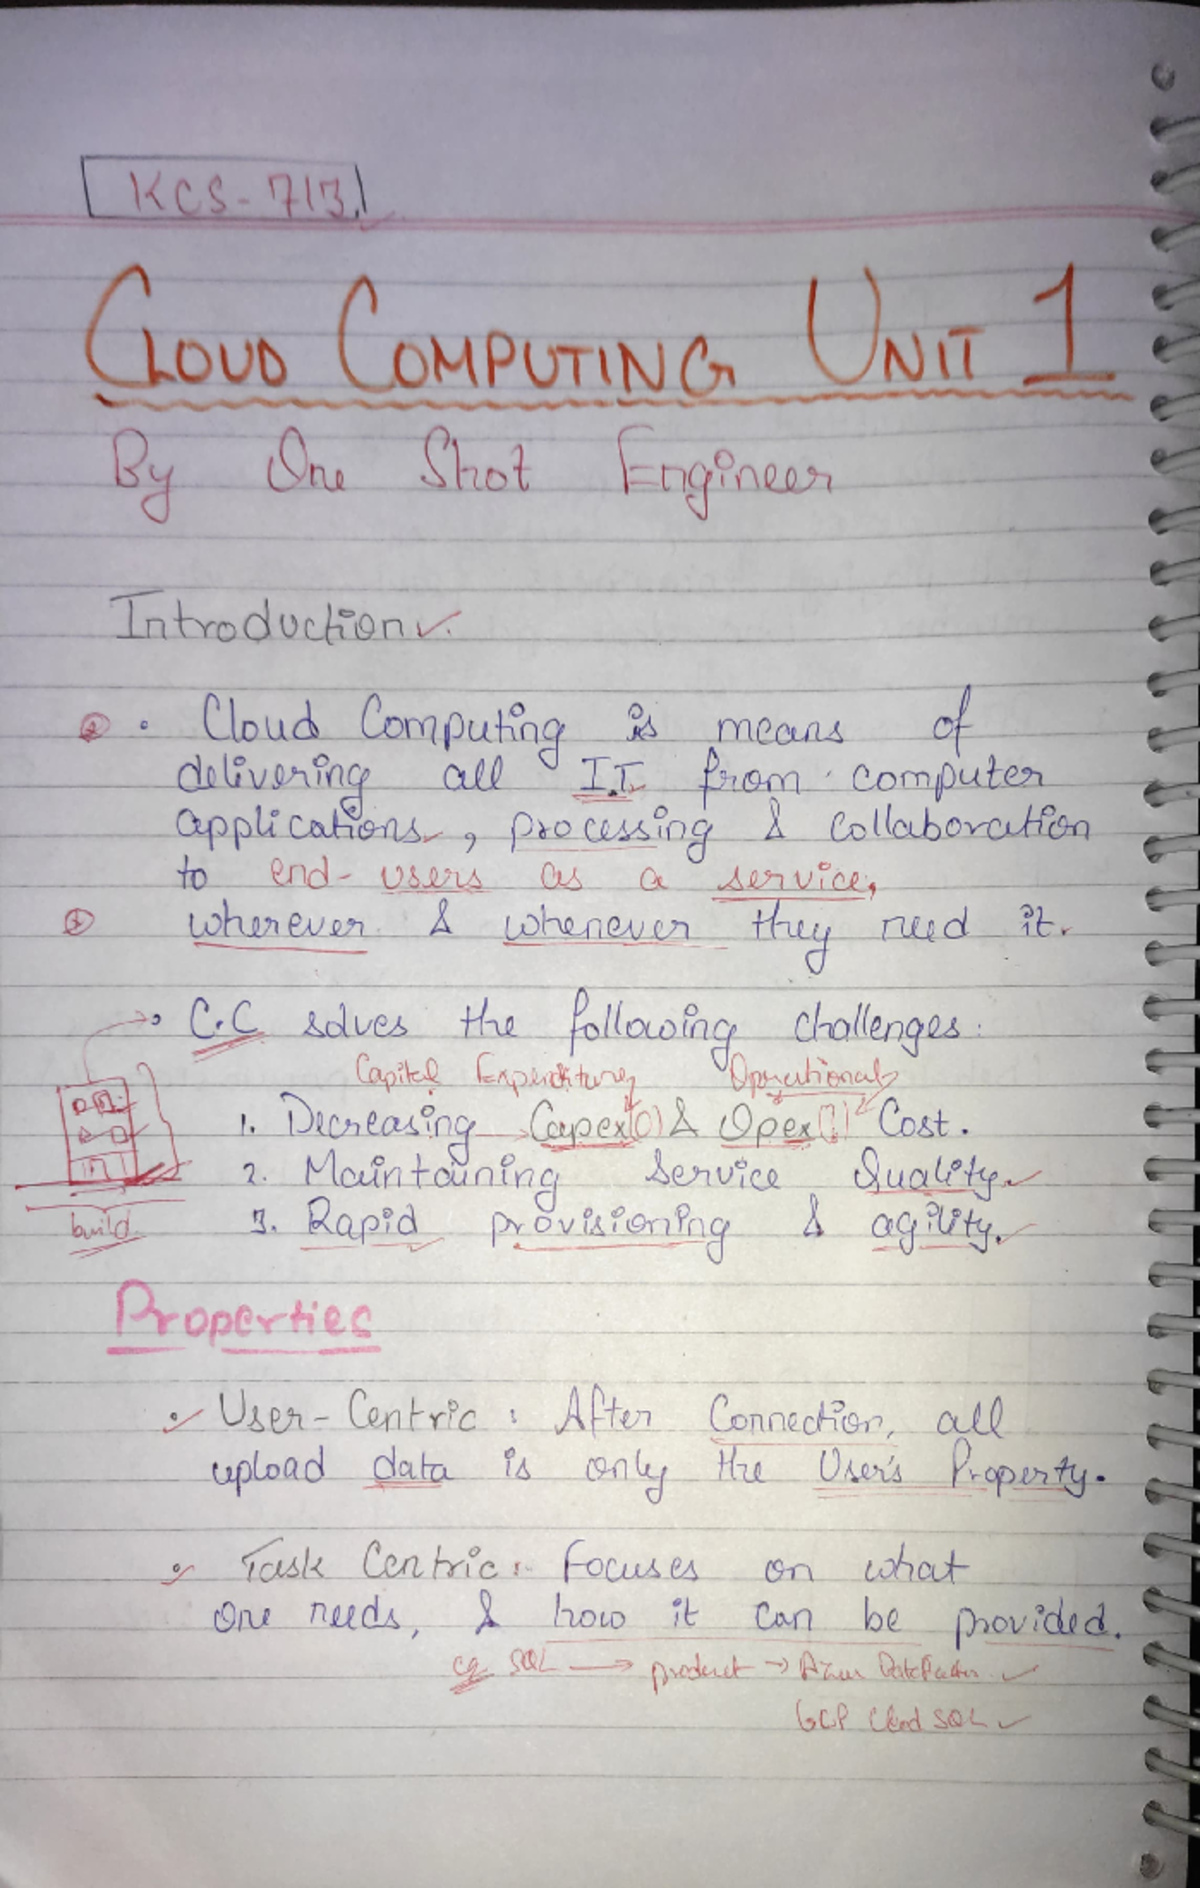 KCS-713
CLOUD COMPUTING UNIT 1
By One Shot Engineer
Introduction
• Cloud Computing is means of
delivering all I.T. from computer
applications, processing & collaboration
to end-users as a service,
wherever & whenever they need it.
C.C solves the following challenges:
Capital Expenditure Operational
1. Decreasing Capex & Opex Cost.
2. Maintaining Service Quality.
3. Rapid provisioning & agility.
build
Properties
• User-Centric: After Connection, all
upload data is only the User's Property.
• Task Centric: Focuses on what
one needs, & how it can be provided.
eg SQL → product → Azure
GCP Cloud SQL